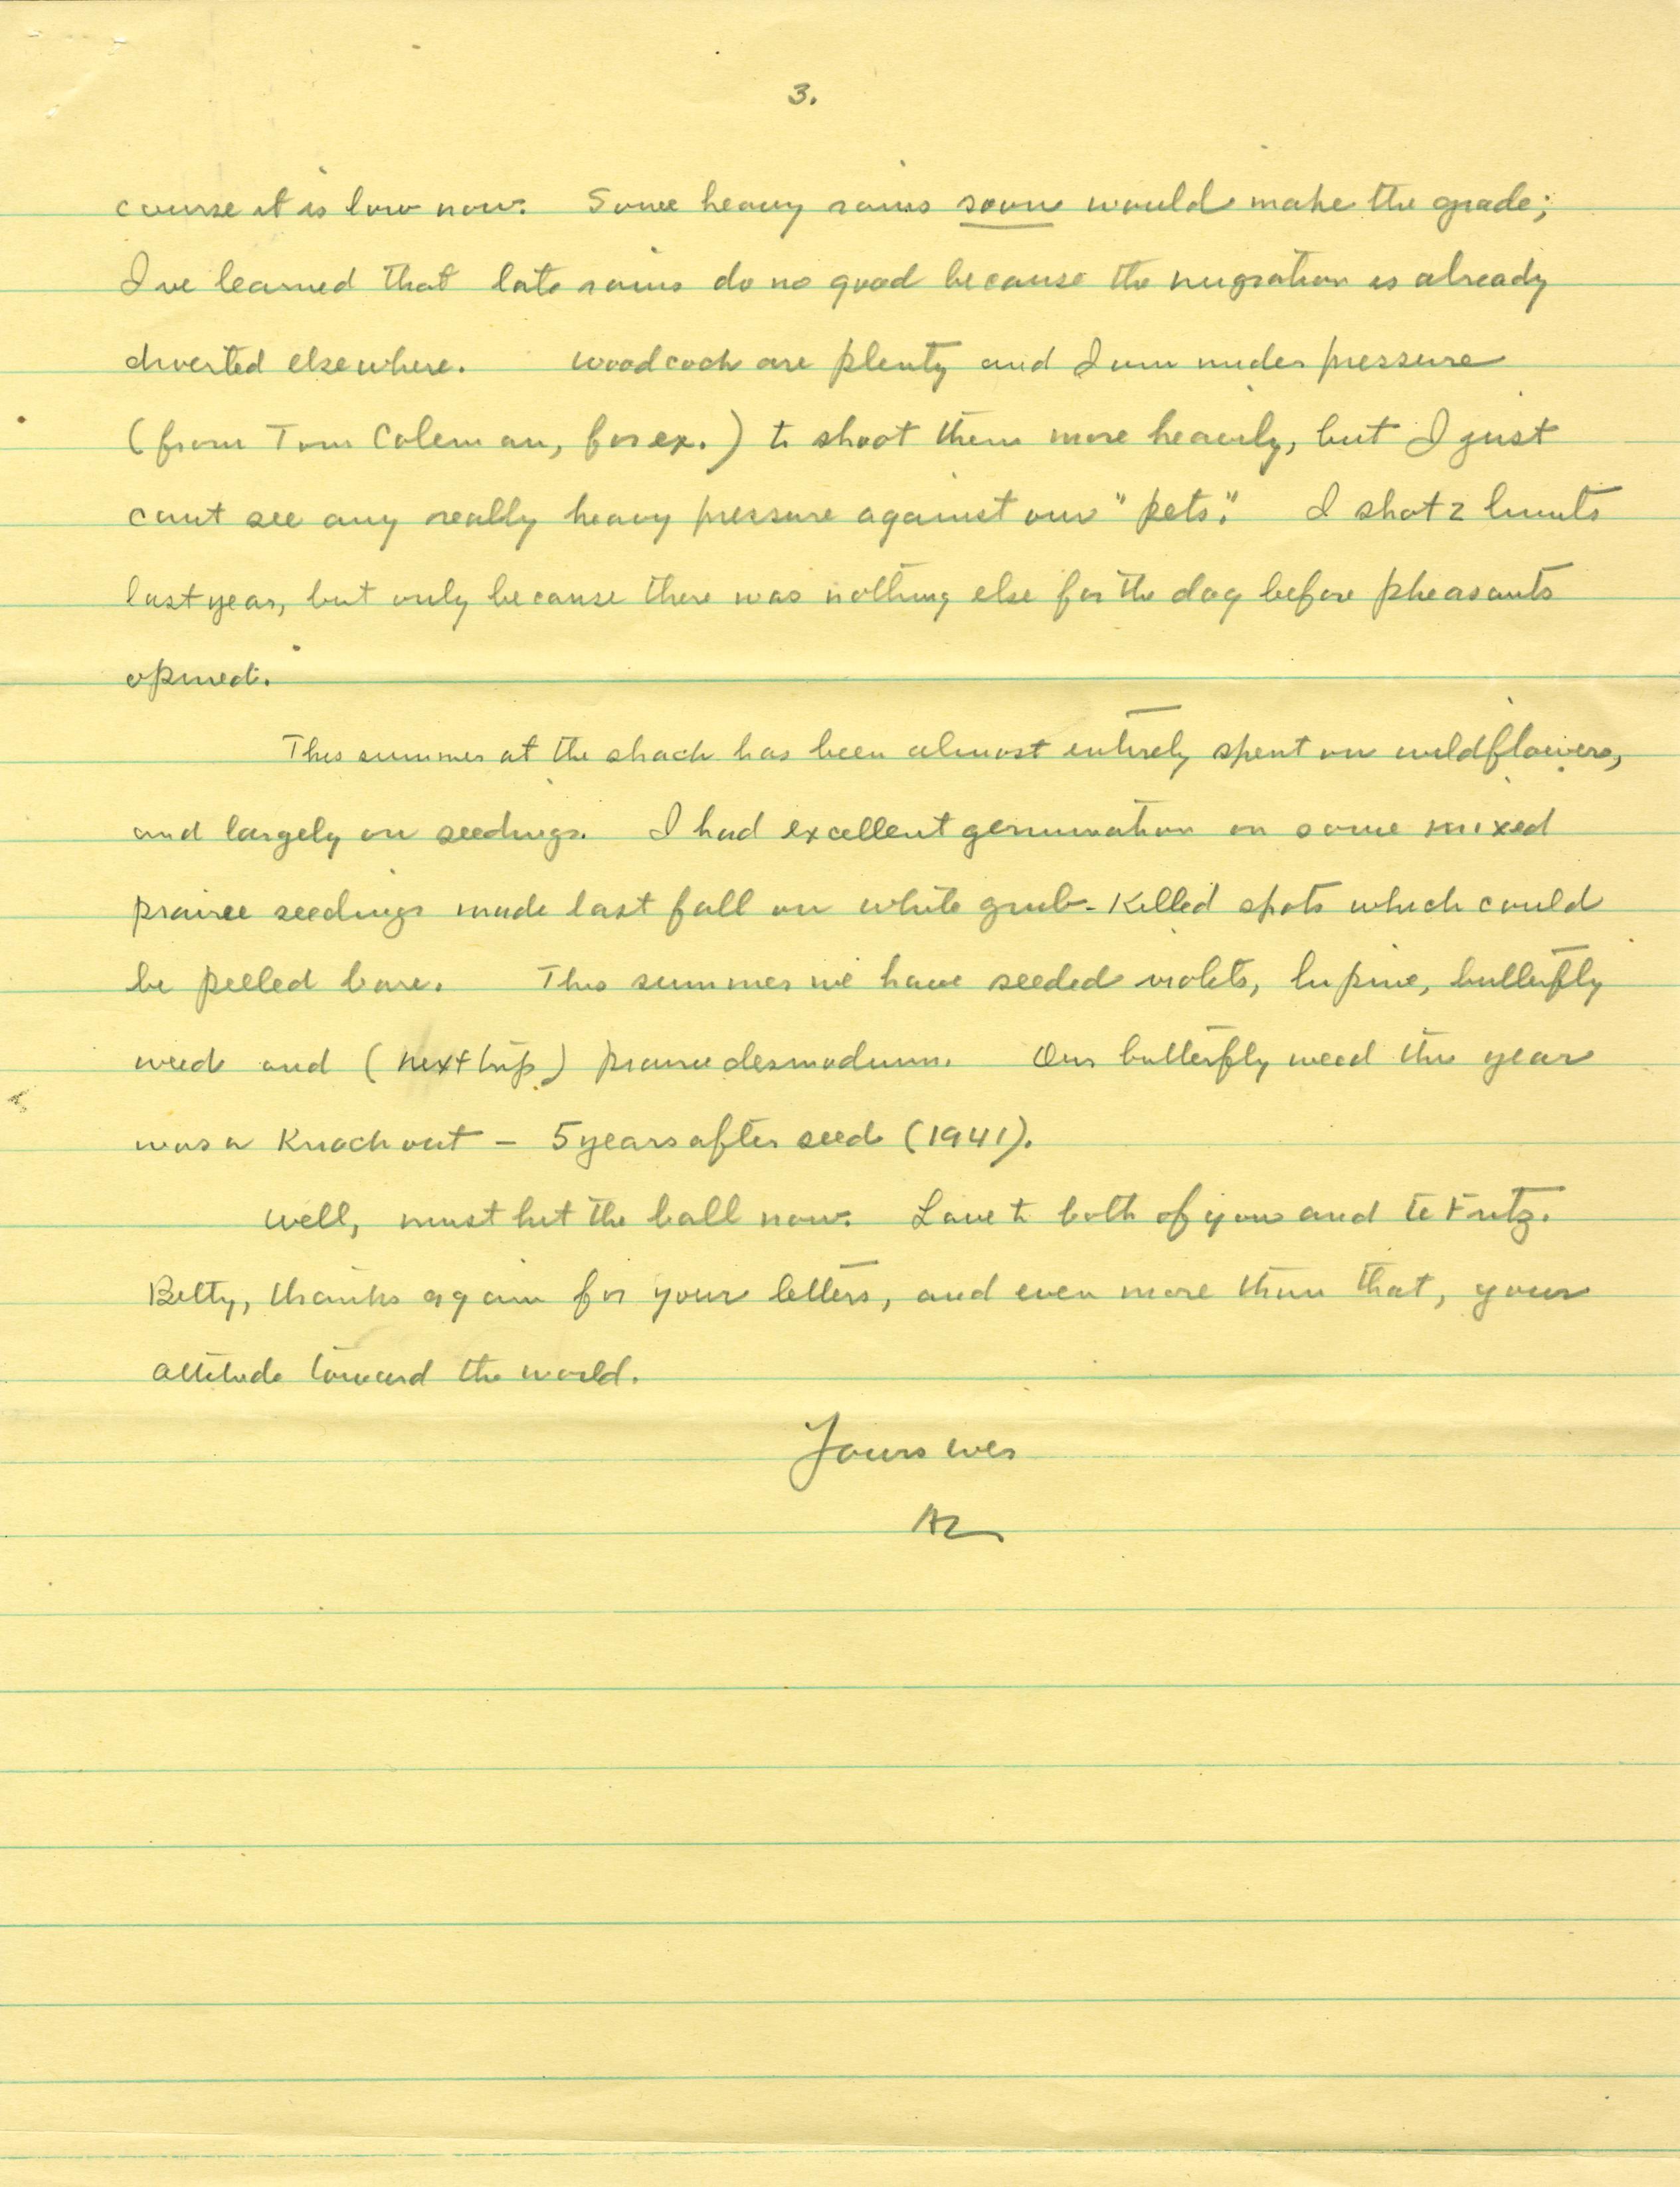 3.
course it is low now. Some heavy rains soon would make the grade;
I've learned that late rains do no good because the migration is already
diverted elsewhere. Woodcock are plenty and I am under pressure
(from Tom Coleman, for ex.) to shoot them more heavily, but I just
cant see any really heavy pressure against our "pets." I shot 2 limits
last year, but only because there was nothing else for the dog before pheasants
opened.
This summer at the shack has been almost entirely spent on wildflowers,
and largely on seedings. I had excellent germination on some mixed
prairie seedings made last fall on white grub-killed spots which could
be peeled bare. This summer we have seeded violets, lupine, butterfly
weed and (next trip) prairie desmodium. Our butterfly weed this year
was a knockout – 5 years after seed (1941).
Well, must hit the ball now. Love to both of you and to Fritz.
Betty, thanks again for your letters, and even more than that, your
attitude toward the world.
Yours ever
AL